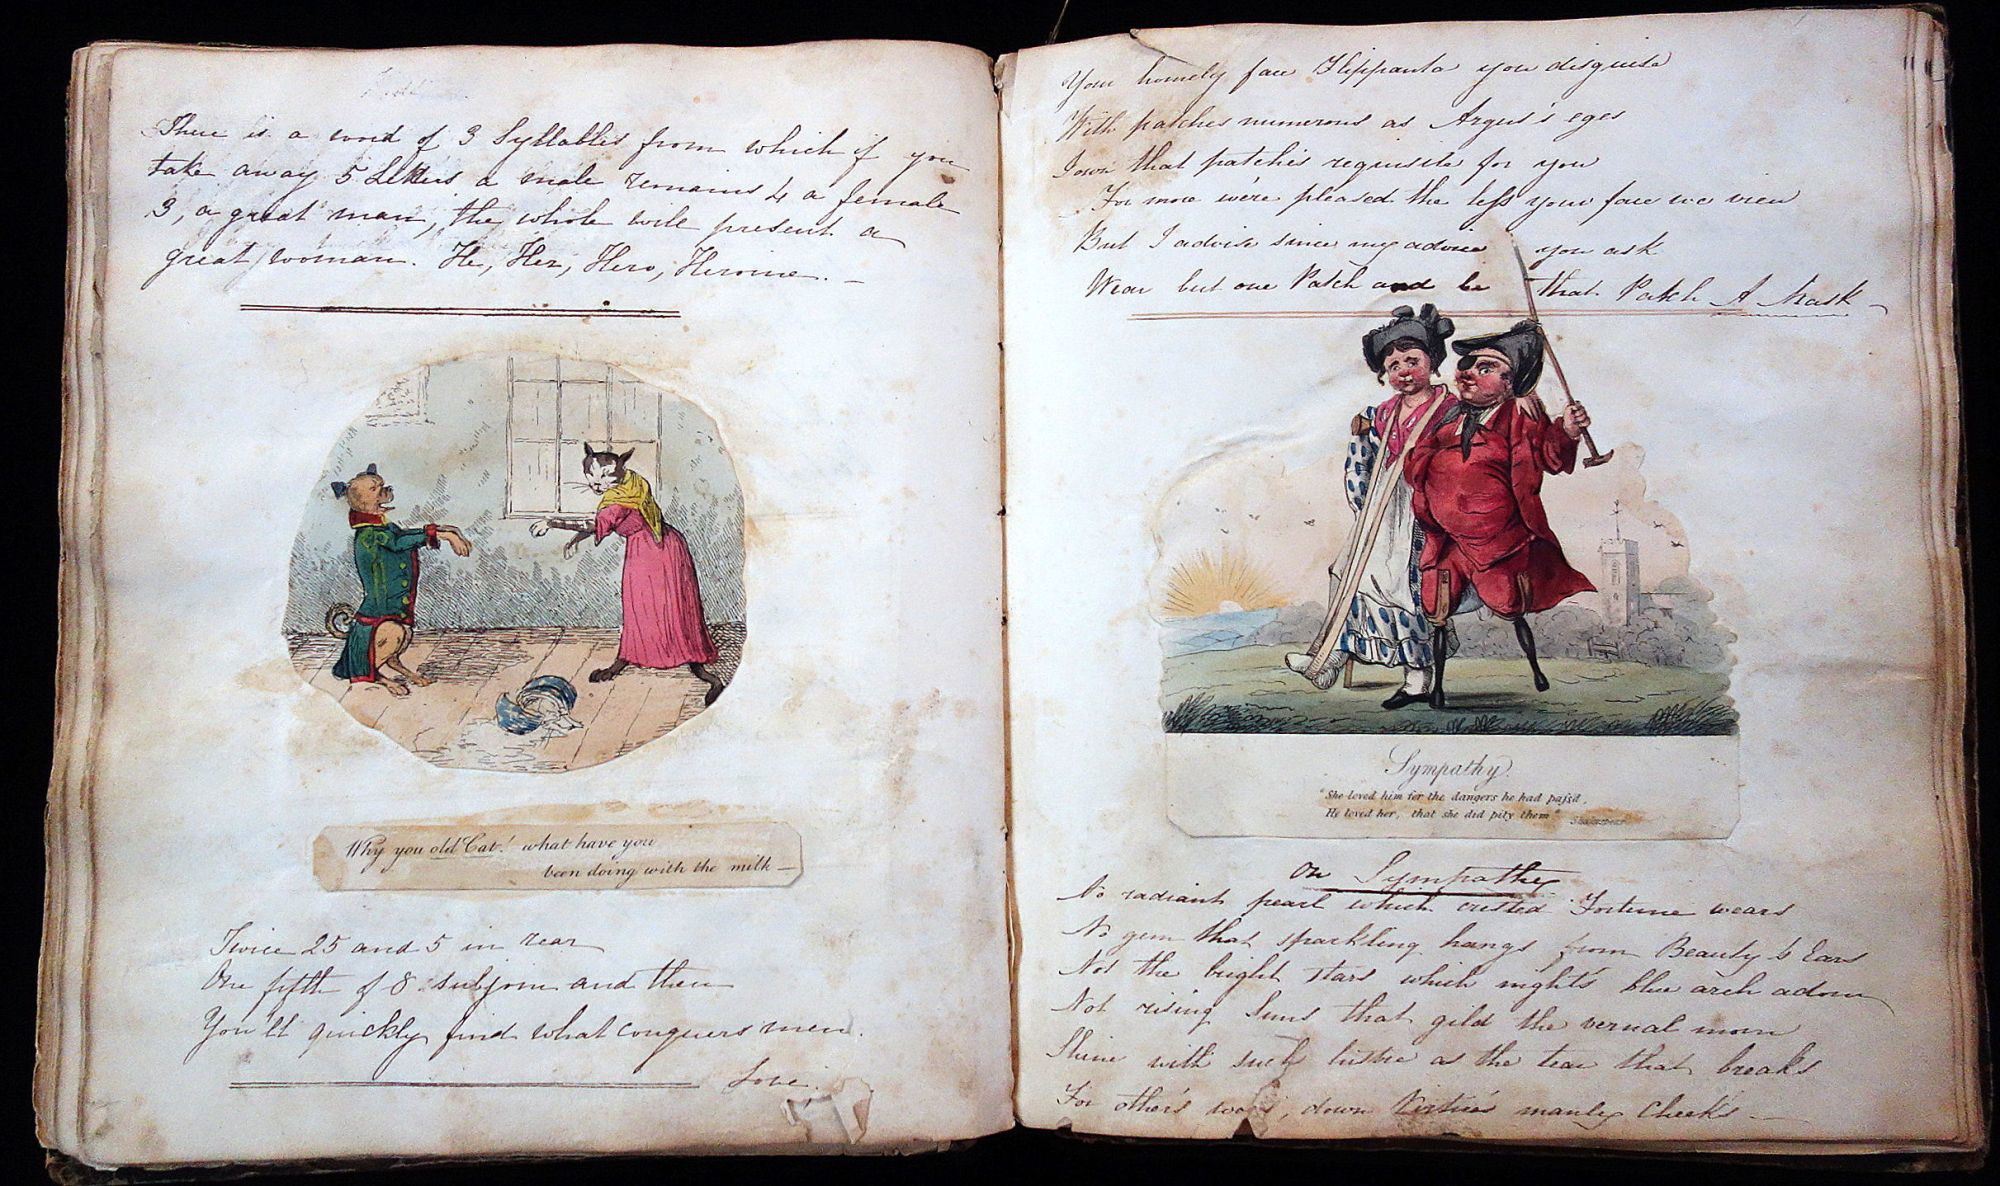 There is a word of 3 Syllables from which if you
take away 5 Letters a male remains 4 a female
3, a great man, the whole will present a
great woman. He, Her, Hero, Heroine.
Why you old Cat! what have you
been doing with the milk
Twice 25 and 5 in rear
One fifth of 8 subjoin and then
You'll quickly find what conquers men.
Love.
Your homely face Flippanta you disguise
With patches numerous as Argus's eyes
I own that patches requisite for you
For more we're pleased the less your face we view
But I advise since my advice you ask
Wear but one Patch and be that Patch A Mask
Sympathy.
"She loved him for the dangers he had pass'd,
He loved her, that she did pity them"
On Sympathy
No radiant pearl which crested Fortune wears
No gem that sparkling hangs from Beauty's Ears
Not the bright stars which night's blue arch adorn
Not rising Suns that gild the vernal morn
Shine with such lustre as the tear that breaks
For other's woes, down Virtue's manly Cheeks